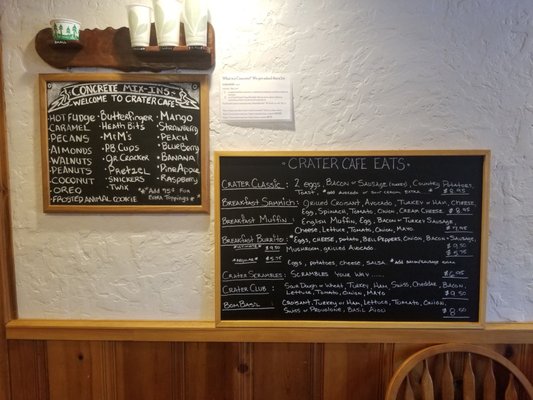 CONCRETE MIX-INS
WELCOME TO CRATER CAFE
HOT FUDGE • Butterfinger • Mango
CARAMEL • Heath Bits • Strawberry
PECANS • M&M's • PEACH
ALMONDS • PB Cups • BlueBerry
WALNUTS • Gr. Cracker • BANANA
PEANUTS • Pretzel • PineApple
COCONUT • SNICKERS • RASPBERRY
OREO • TWIX
FROSTED ANIMAL COOKIE
CRATER CAFE EATS
CRATER CLASSIC: 2 eggs, BACON or SAUSAGE, COUNTRY POTATOES,
TOAST, EXTRA $8.95
BREAKFAST SAMMICH: Grilled Croissant, Avocado, TURKEY or HAM, CHEESE,
Egg, Spinach, TOMATO, ONION, CREAM CHEESE $8.95
BREAKFAST MUFFIN: ENGLISH MUFFIN, EGG, BACON or TURKEY SAUSAGE,
CHEESE, LETTUCE, TOMATO, ONION, MAYO
BREAKFAST BURRITO: EGGS, CHEESE, POTATO, BELL PEPPERS, ONION, BACON or SAUSAGE,
MUSHROOM, grilled AVOCADO $9.50
EGGS, POTATOES, CHEESE, SALSA $5.75
CRATER SCRAMBLES: SCRAMBLES YOUR WAY.....
CRATER CLUB: SOUR DOUGH or WHEAT, TURKEY, HAM, SWISS, CHEDDAR, BACON,
LETTUCE, TOMATO, ONION, MAYO $9.50
BOM BASIL: CROISSANT, TURKEY or HAM, LETTUCE, TOMATO, ONION,
SWISS or PROVOLONE, BASIL AIOLI $8.50